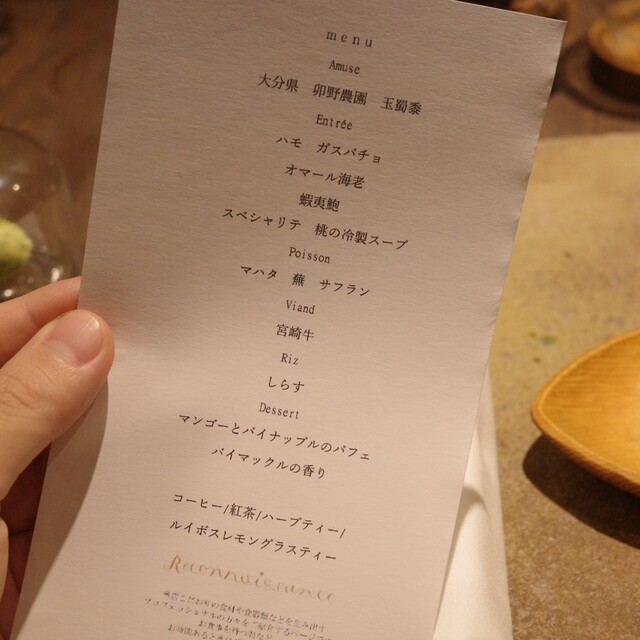 menu
Amuse
大分県 卯野農園 玉蜀黍
Entrée
ハモ ガスパチョ
オマール海老
蝦夷鮑
スペシャリテ 桃の冷製スープ
Poisson
マハタ 蕪 サフラン
Viand
宮崎牛
Riz
しらす
Dessert
マンゴーとパイナップルのパフェ
バイマックルの香り
コーヒー/紅茶/ハーブティー/
ルイボスレモングラスティー
Reconnaissance
当店こだわりの食材や食器類などを生み出す
プロフェッショナルの方々をご紹介するページです
お食事を待つ間など